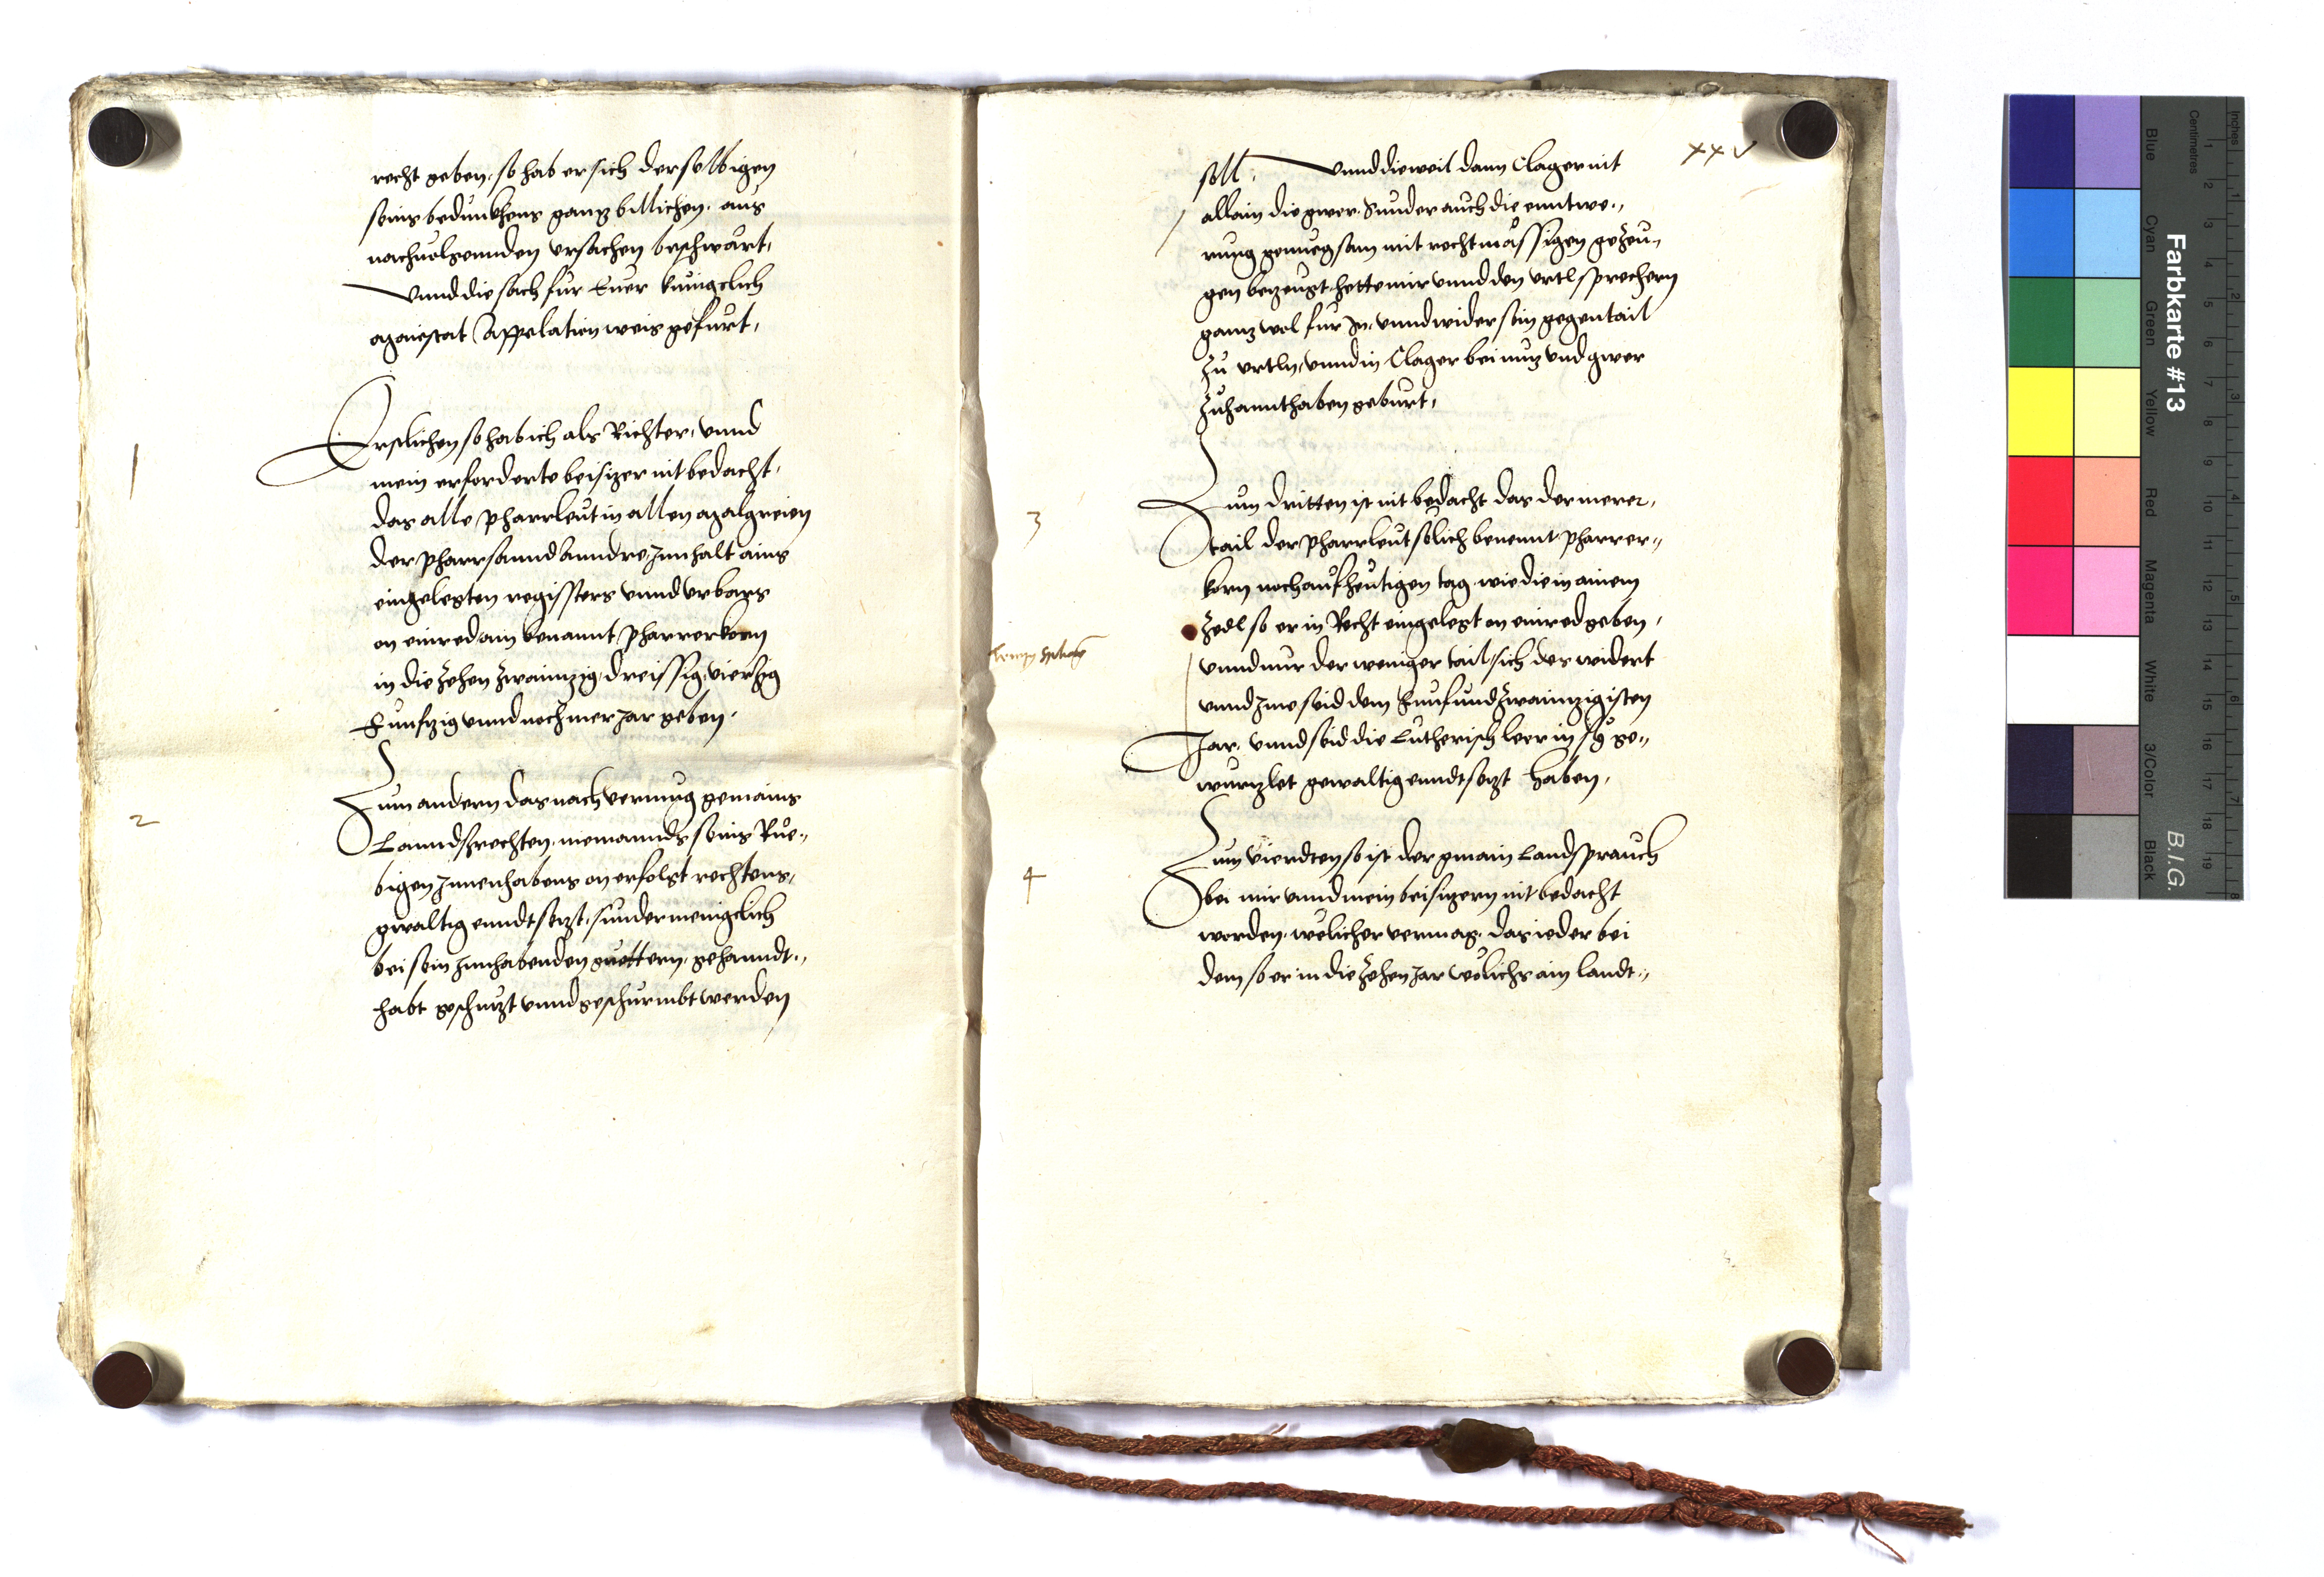 recht geben, so hab er sich derselbigen
seins bedunkhens ganz billichen, aus
nachuolgennden vrsachen beschwärt,
Vnnd die sach fur Euer kunigclich
Maiestat Appelation weis gefurt,
1
Erstlichen so hab ich als Richter, vnnd
mein erforderte beisizer nit bedacht,
das alle pharrleut in allen Malgreien
der pharr sannd Anndre, Innhalt ains
eingelegten registers vnnd vrbars
on einred ain benannt pharrerkorn
in die zehen zwainnzig, dreissig, vierzig
Funfzig vnnd noch mer Jar geben.
2
Zum andern das nach vermug gemains
Lanndsrechten, niemannds seins Rue-,
bigen Innenhabens on erfolgt rechtens,
gwaltig enndtsezt, sunder menigclich
bei sein Innhabenden guettern, gehanndt-,
habt geschuzt vnnd geschurmbt werden
xxv
soll, Vnnd dieweil dann Clager nit
allain die gwer, Sunder auch die enntwe-,
rung genuegsam mit rechtmässigen gezeu-,
gen bezeugt, hette mir vnnd den vrtlsprechern
ganz wol fur In, vnnd wider sein gegentail
zu vrtln, vnnd in Clager bei nuz vnd gwer
zuhannthaben geburt,
3
Zum dritten ist nit bedacht das der merer,
tail der pharrleut solich benennt pharrer-,
korn noch auf heutigen tag, wie die in ainem
Zedl so er in Recht eingelegt on einred geben,
vnnd nur der weniger tail, sich des widert
vnnd Ine seid dem Funfundzwainzigisten
Jar, vnnd seid die Lutherisch leer in sy ge-,
wurzlet gewaltig enndtsezt haben,
4
Zum Vierdten so ist der gmain Landsprauch
bei mir vnnd mein beisizern nit bedacht
worden, welicher vermag, das ieder bei
dem so er in die zehen Jar welichs ain landt-,
Farbkarte #13
B.I.G.
Inches
Centimetres
Blue
Cyan
Green
Yellow
Red
Magenta
White
3/Color
Black